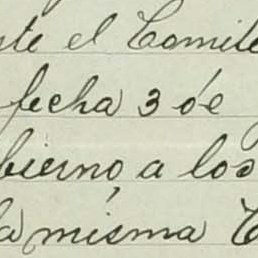 nte el Comite
fecha 3 de
bierno, a los
la misma C